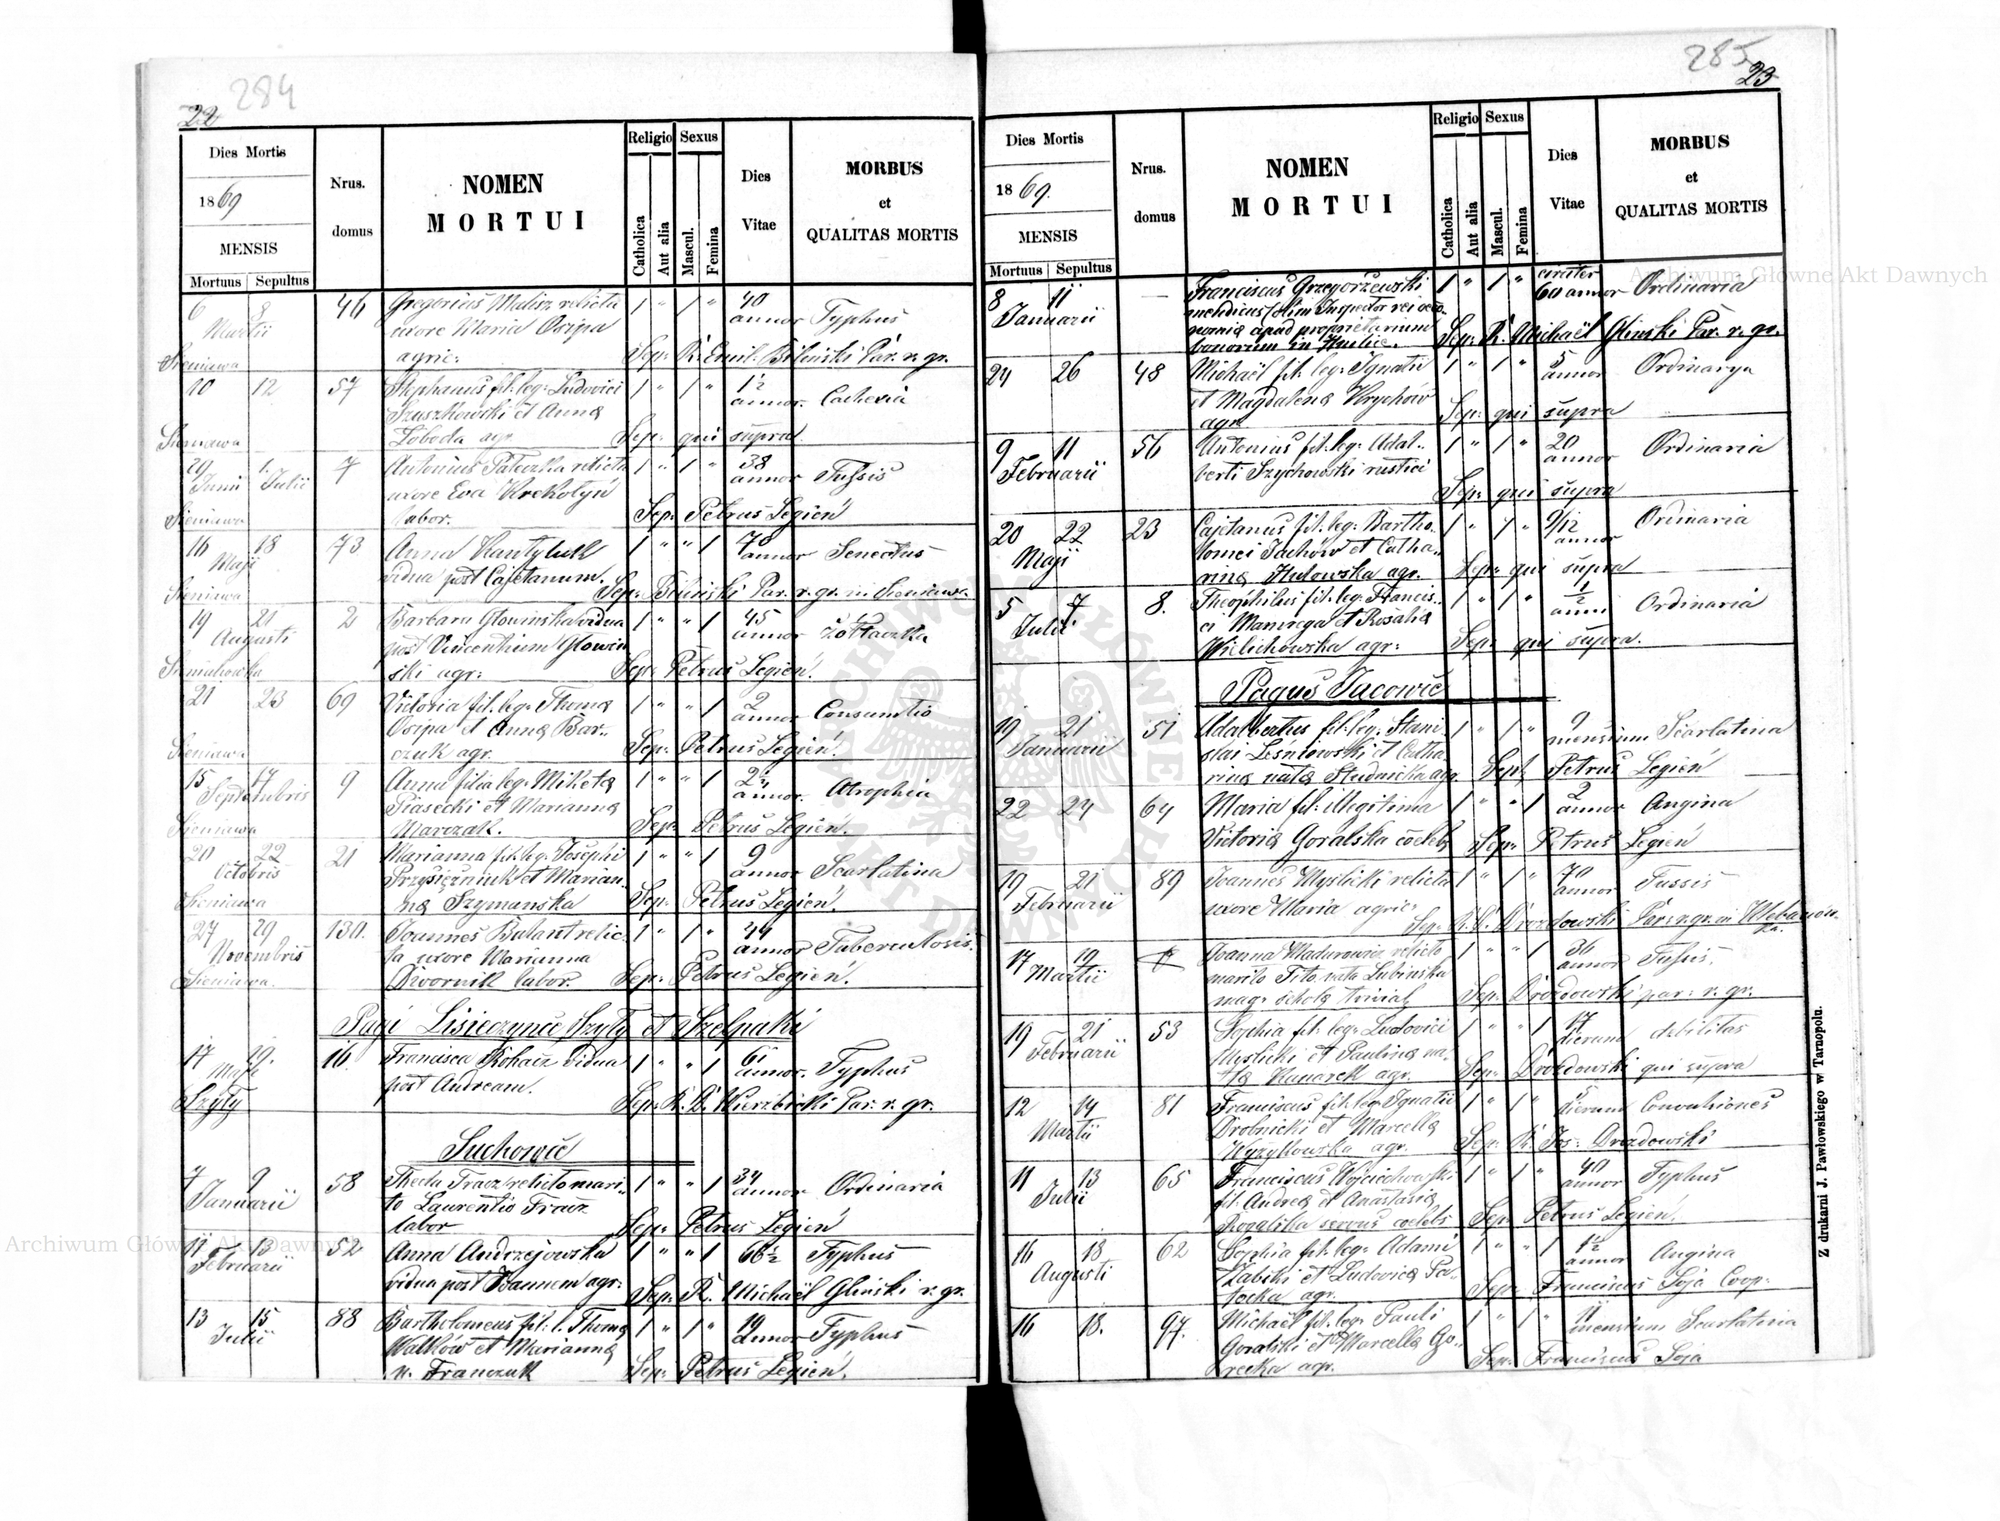 284
22
Dies Mortis
1869
MENSIS
Mortuus Sepultus
Nrus. domus
NOMEN
MORTUI
Religio Sexus
Catholica
Aut alia
Mascul.
Femina
Dies Vitae
MORBUS
et
QUALITAS MORTIS
6 8 46 Gregorius Malisz relicta 1 " 1 " 40
Martii uxore Maria Osipa annor Typhus
Sieniawa agric: Sep: R. Emil: Biliński Par. r. gr.
10 12 57 Stephanus fil. leg: Ludovici 1 " 1 " 1½
Szuszkowski et Anna annor. Cachexia
Sieniawa Łoboda agr. Sep: qui supra
29 1. 7 Antonius Pateczka relicta 1 " 1 " 38
Junii Julii uxore Eva Krekotyń annor Tussis
Sieniawa labor. Sep: Petrus Legień
16 18 73 Anna Kantyluk 1 " " 1 70
Maji vidua post Cajetanum. annor Senectus
Sieniawa Sep: Biliński Par. r. gr. in
19 21 2 Barbara Głowińska vidua 1 " " 1 45
Augusti post Vincentium Głowiń annor Żółtaczka
ski agr: Sep: Petrus Legień.
21 23 69 Victoria fil. leg: Thoma 1 " " 1 2
Osipa et Anna Bar- annor Consumtio
Sieniawa czuk agr. Sep: Petrus Legień.
15 17 9 Anna filia leg: Miketa 1 " " 1 2½
Septembris Piasecki et Marianna annor. Atrophia
Sieniawa Marczak. Sep: Petrus Legień.
20 22 21 Marianna fil. leg: Josephi 1 " " 1 9
Octobris Przysiężniuk et Marian- annor Scarlatina
Sieniawa na Szymańska Sep: Petrus Legień.
27 29 130. Joannes Bulant relic- 1 " 1 " 44
Novembris ta uxore Marianna annor Tuberculosis.
Sieniawa. Dwornik labor. Sep: Petrus Legień.
Pagi Lisieczyńce, Szyły et Szelpaki
17 19. 16 Francisca Bohacz vidua 1 " " 1 61
Maji post Andream. annor. Typhus
Szyły Sep: R. D. Wierzbicki Par. r. gr.
Suchowic
7 9 58 Thecla Tracz relicto mari- 1 " " 1 34
Januarii to Laurentio Tracz annor Ordinaria
labor Sep: Petrus Legień
11 13 52 Anna Andrzejowska 1 " " 1 66½ Typhus
Februarii vidua post Joannem agr: Sep: R. Michaël Gliński r. gr.
13 15 88 Bartholomeus fil: l. Thoma 1 " 1 " 19
Julii Walków et Marianna annor Typhus
n. Franczuk Sep: Petrus Legień.
285
23
Dies Mortis
1869.
MENSIS
Mortuus Sepultus
Nrus. domus
NOMEN
MORTUI
Religio Sexus
Catholica
Aut alia
Mascul.
Femina
Dies Vitae
MORBUS
et
QUALITAS MORTIS
8 11 — Franciscus Grzegorzewski 1 " 1 " circiter
Januarii mendicus olim Inspector rei oeco- 60 annor Ordinaria
nomia apud proprietarium
bonorum in Sep: R. Michaël Gliński Par. r. gr.
24 26 48 Michaël fil. leg: Ignatii 1 " 1 " 5
et Magdalena Krychów annor Ordinarya
agr. Sep: qui supra
9 11 56 Antonius fil. leg: Adal- 1 " 1 " 20
Februarii berti Szychowski rustici annor Ordinaria
Sep: qui supra
20 22 23 Cajetanus fil. leg: Bartho- 1 " 1 " 9/12
Maji lomei Jachów et Catha- annor Ordinaria
rina Hulowska agr. Sep: qui supra
5 7. 8. Theophilus fil. leg: Francis- 1 " 1 " ½
Julii ci Mamrega et Rosalia anni Ordinaria
Wilichowska agr: Sep: qui supra.
Pagus Jacowic
19 21 51 Adalbertus fil. leg: Stani- 1 " 1 " 9
Januarii slai Leśniowski et Catha- mensium Scarlatina
rina nata Studnicka agr. Sep: Petrus Legień
22 24 64 Maria fil: illegitima 1 " " 1 2
Victoria Goralska coeleb. annor Angina
Sep: Petrus Legień
19 21 89 Joannes Myślicki relicta 1 " 1 " 70
Februarii uxore Maria agric: annor Tussis
Sep: R. D. Drozdowski Par. r. gr. in
17 19 Joanna Madurowicz relicto 1 " " 1 36
Martii marito Tito nata Lubińska annor Tussis.
mag: schola trivial Sep: Drozdowski par: r. gr.
19 21 53 Sophia fil. leg: Ludovici 1 " " 1 17
Februarii Myślicki et Paulina na- dierum debilitas
ta Kanarek agr. Sep: Drozdowski qui supra
12 14 81 Franciscus fil. leg: Ignatii 1 " 1 " 5
Martii Drobnicki et Marcella dierum Convulsiones
Wyżykowska agr. Sep: R. Jos: Drozdowski
11 13 65 Franciscus Wojciechowski 1 " 1 " 40
Julii fil. Andrea et Anastasia annor Typhus
Rogalska servus coelebs Sep: Petrus Legień.
16 18 62 Sophia fil. leg: Adami 1 " " 1 1½
Augusti Kabiki et Ludovica Po- annor Angina
tocka agr. Sep: Franciscus Soja Coop.
16 18. 97. Michaël fil. leg: Pauli 1 " 1 " 11
Goralski et Marcella Go- mensium Scarlatina
recka agr. Sep: Franciscus Soja
Z drukarni J. Pawłowskiego w Tarnopolu.
Archiwum Główne Akt Dawnych
Archiwum Główne Akt Dawnych
ARCHIWUM GŁÓWNE AKT DAWNYCH